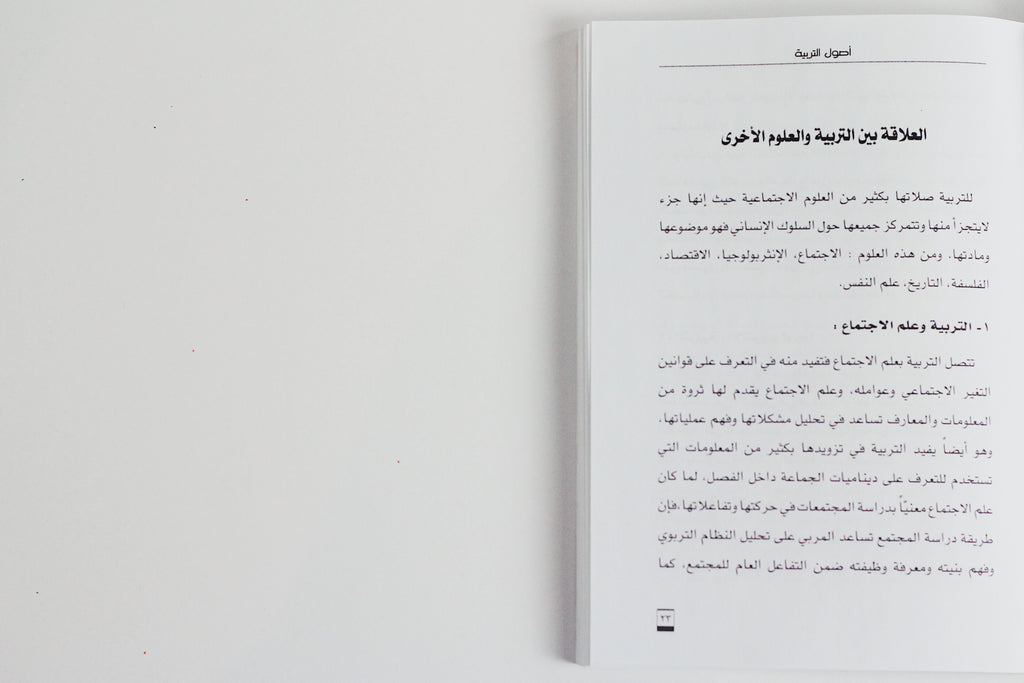 أصول التربية
العلاقة بين التربية والعلوم الأخرى
للتربية صلاتها بكثير من العلوم الاجتماعية حيث إنها جزء
لايتجزأ منها وتتمركز جميعها حول السلوك الإنساني فهو موضوعها
ومادتها، ومن هذه العلوم : الاجتماع، الإنثربولوجيا، الاقتصاد،
الفلسفة، التاريخ، علم النفس.
١- التربية وعلم الاجتماع :
تتصل التربية بعلم الاجتماع فتفيد منه في التعرف على قوانين
التغير الاجتماعي وعوامله، وعلم الاجتماع يقدم لها ثروة من
المعلومات والمعارف تساعد في تحليل مشكلاتها وفهم عملياتها،
وهو أيضاً يفيد التربية في تزويدها بكثير من المعلومات التي
تستخدم للتعرف على ديناميات الجماعة داخل الفصل، لما كان
علم الاجتماع معنيّاً بدراسة المجتمعات في حركتها وتفاعلاتها،فإن
طريقة دراسة المجتمع تساعد المربي على تحليل النظام التربوي
وفهم بنيته ومعرفة وظيفته ضمن التفاعل العام للمجتمع، كما
٢٣